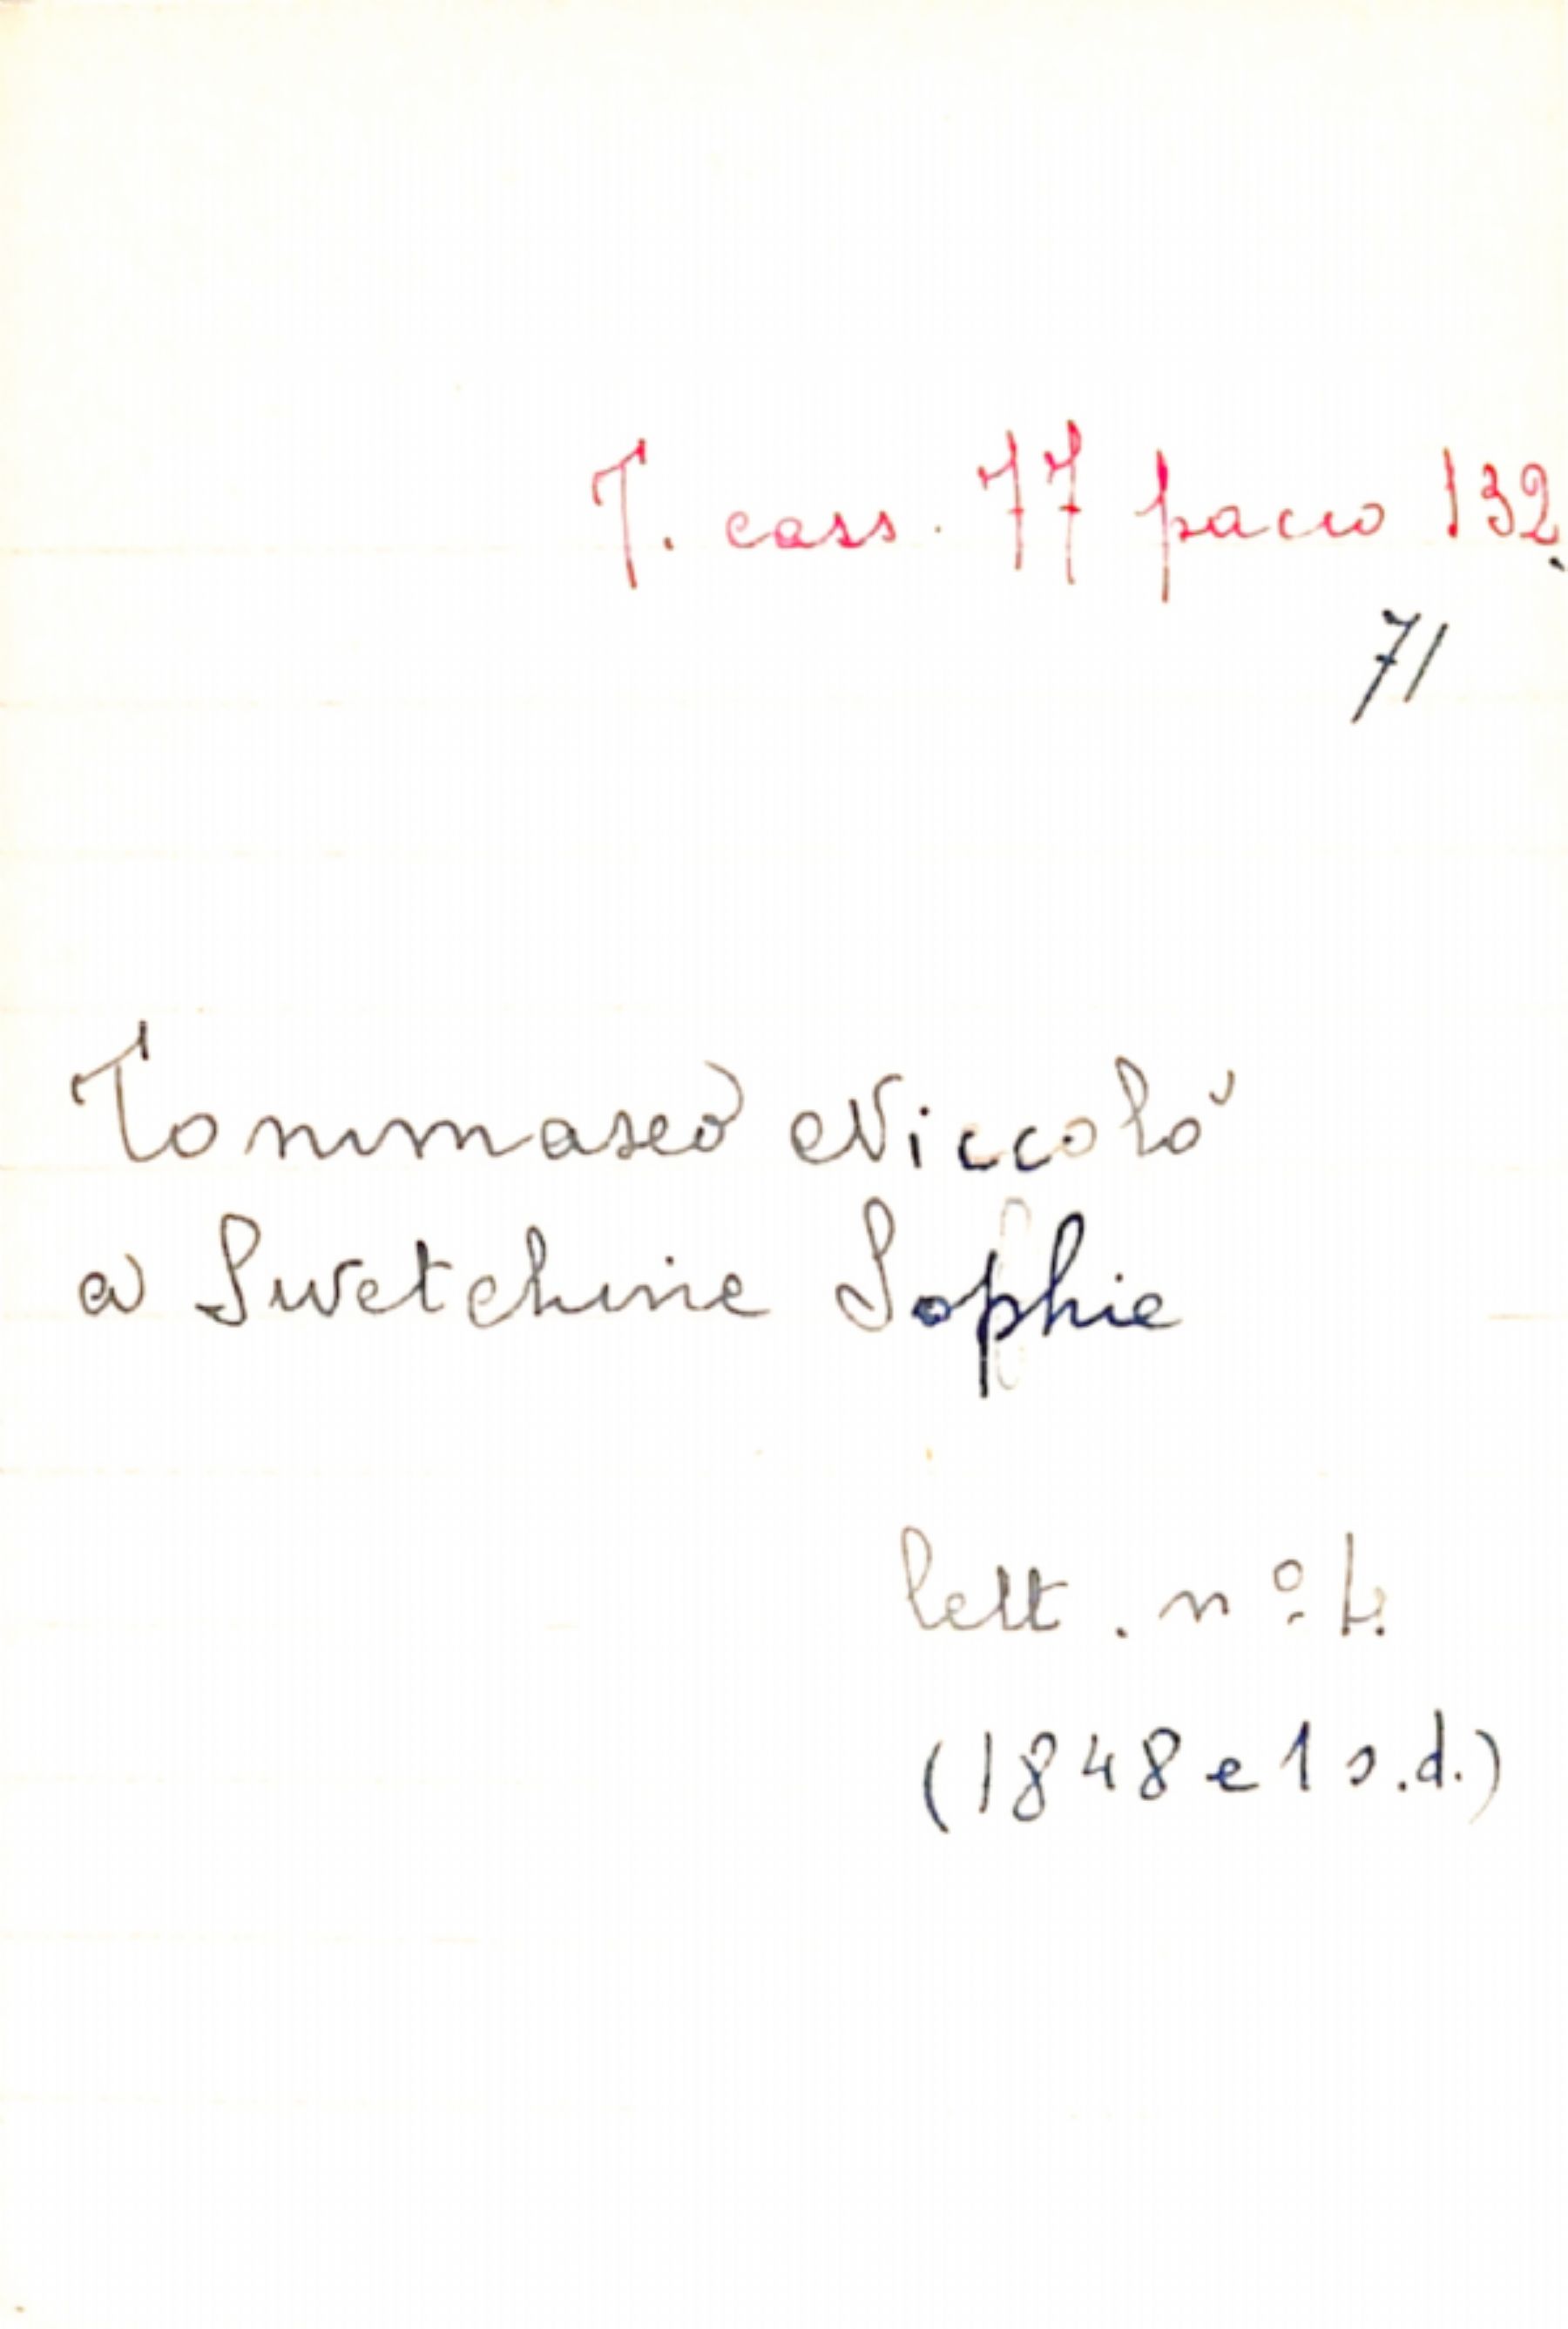 T. cass. 77 pacco 132.
71
Tommaseo Niccolò
a Swetchine Sophie
lett. nº 4.
(1848 e 1 s.d.)